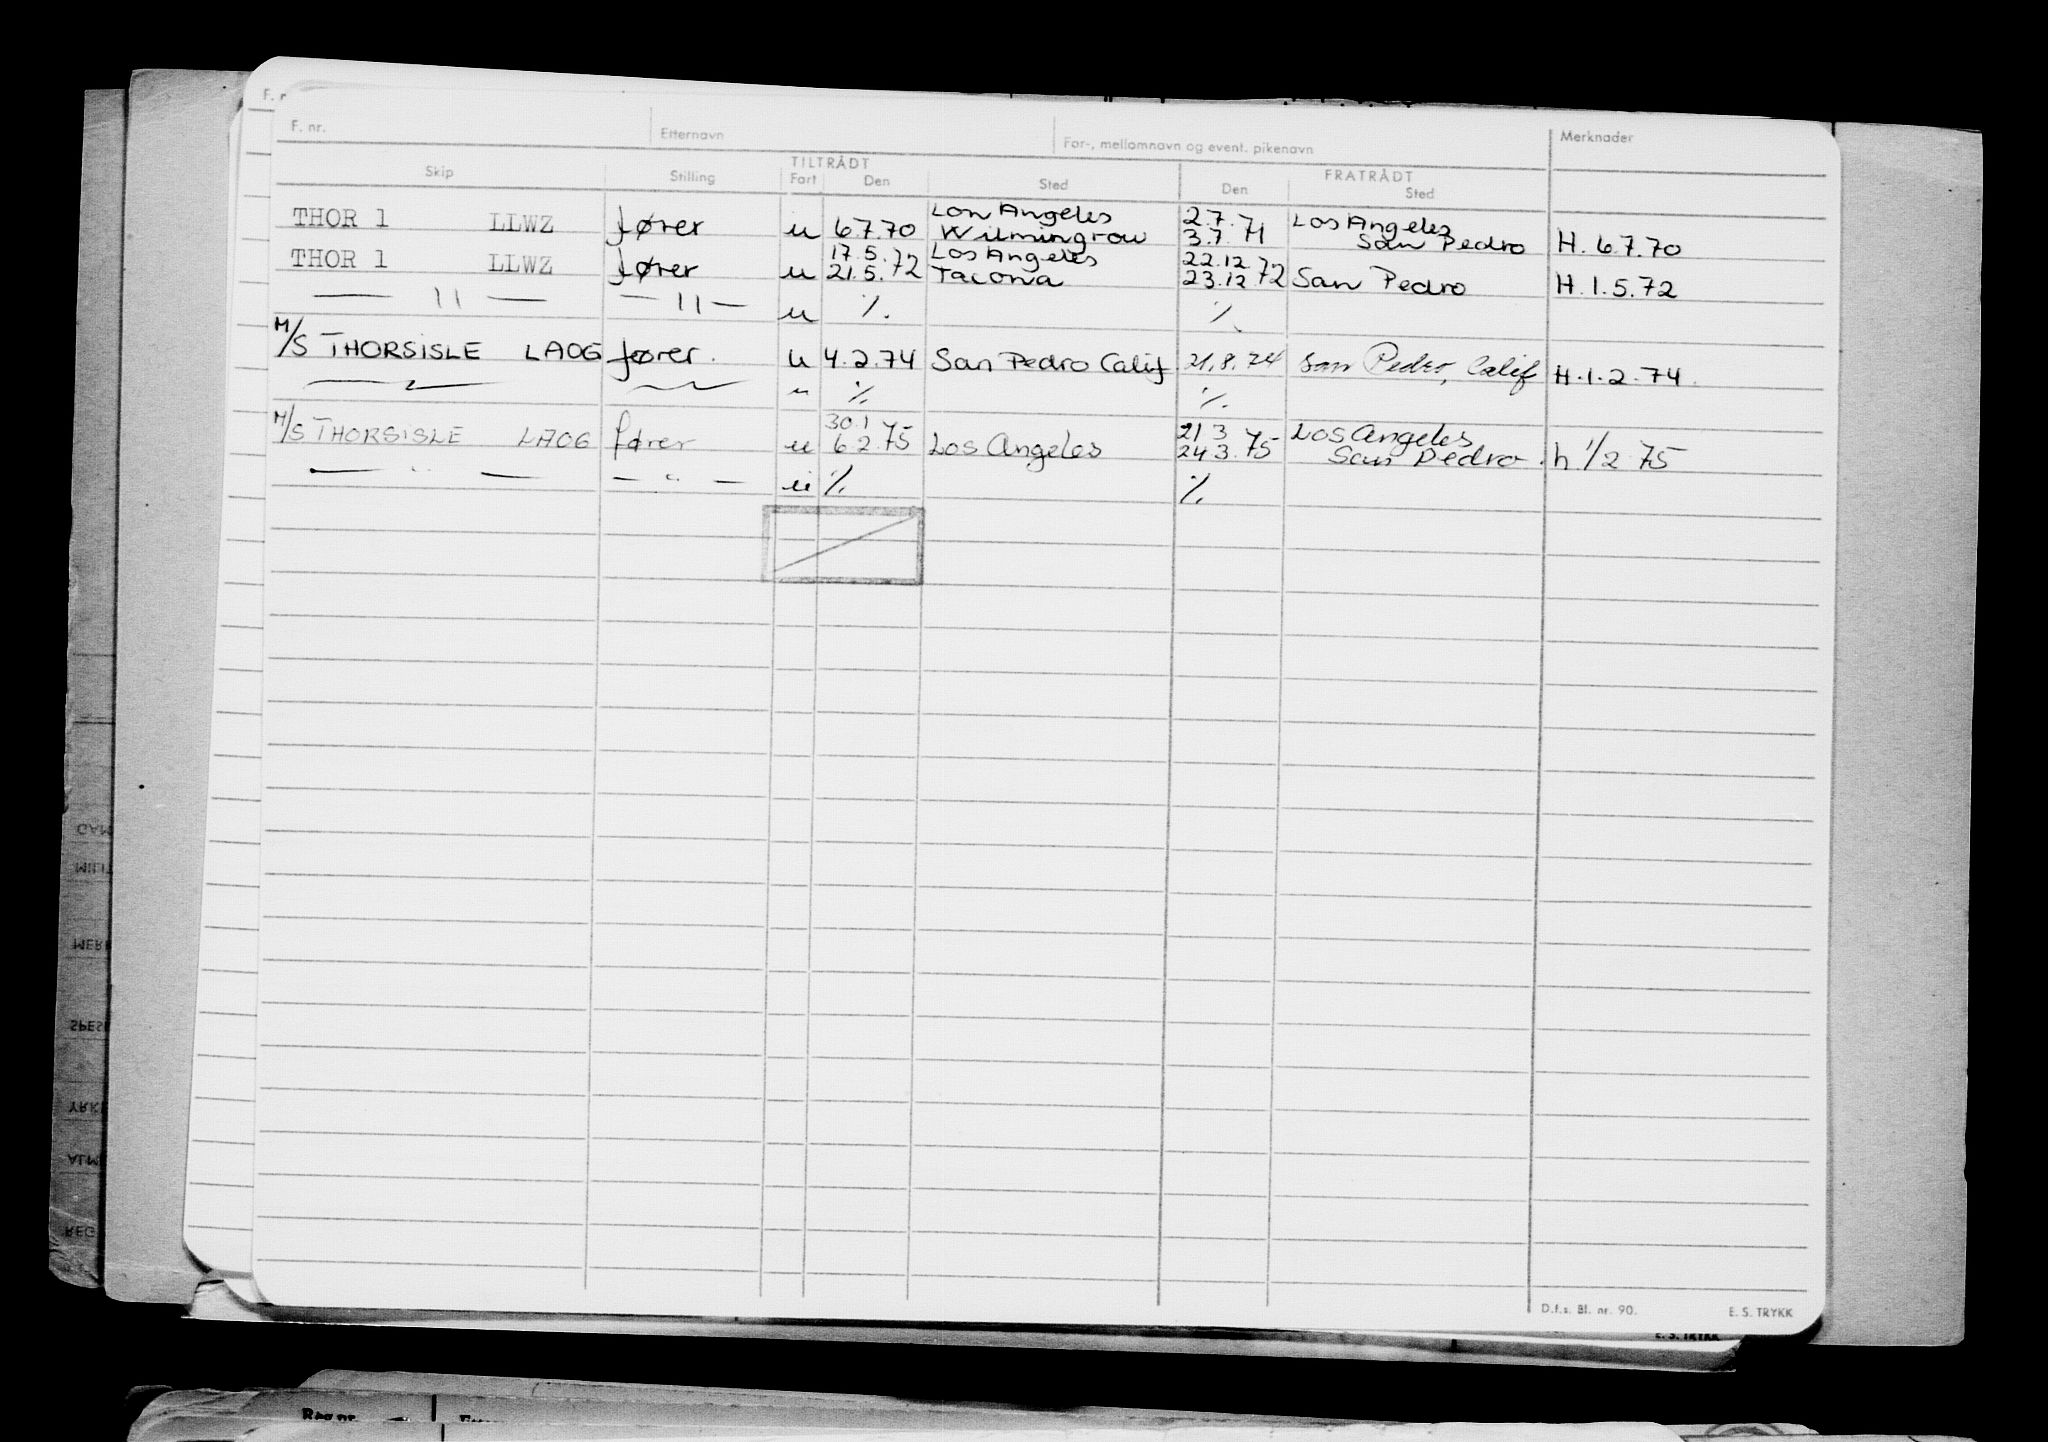 F. nr. Etternavn For-, mellomnavn og event. pikenavn Merknader
TILTRÅDT FRATRÅDT
Skip Stilling Fart Den Sted Den Sted
Lon Angeles 2.7. Los Angeles
THOR 1 LLWZ fører u 6.7.70 Wilmingrow 3.7. 71 San Pedro H. 6.7.70
17.5. Los Angeles 22.12
THOR 1 LLWZ fører u 21.5.72 Tacona 23.12.72 San Pedro H.1.5.72
— 11 — — 11 — u ٪. ٪.
M/S THORSISLE LAOG fører. u 4.2.74 San Pedro Calif 21.8.74 San Pedro, Calif H.1.2.74.
— " — — " — u ٪. ٪.
30.1 21 3 Los Angeles
M/S THORSISLE LAOG fører u 6 2.75 Los Angeles 24 3.75 San Pedro. h 1/2 75
— " — — " — u ٪. ٪.
D.f.s. Bl. nr. 90. E. S. TRYKK
E. S. TRYKK
GAM
MILIT
MERK
SPESI
YRKE
ALM
REG
Reg.nr.